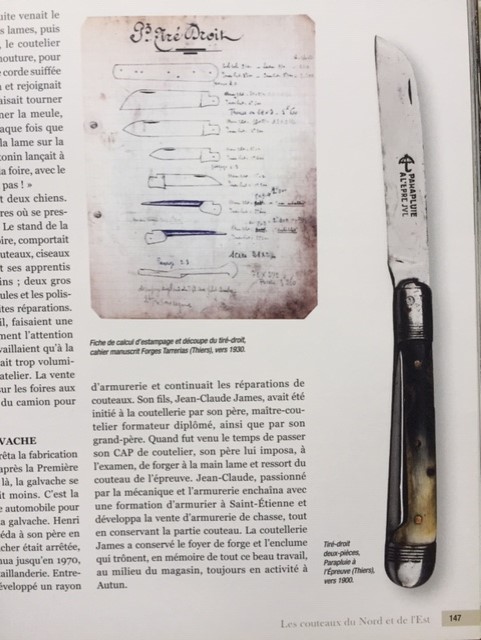 uite venait le
s lames, puis
, le coutelier
outure, pour
corde suiffée
n et rejoignait
aisait tourner
ner la meule,
aque fois que
la lame sur la
tonin lançait à
la foire, avec le
pas ! »
t deux chiens.
res où se pres-
Le stand de la
oire, comportait
uteaux, ciseaux
t ses apprentis
ins ; deux gros
ules et les polis-
ites réparations.
il, faisaient une
ment l'attention
vaillaient qu'à la
ait trop volumi-
atelier. La vente
sur les foires aux
du camion pour
VACHE
rêta la fabrication
après la Première
là, la galvache se
it moins. C'est la
e automobile pour
a galvache. Henri
éda à son père en
cher était arrêtée,
nua jusqu'en 1970,
aillanderie. Entre-
éveloppé un rayon
Tiré Droit
Fiche de calcul d'estampage et découpe du tiré-droit,
cahier manuscrit Forges Tarrerias (Thiers), vers 1930.
d'armurerie et continuait les réparations de
couteaux. Son fils, Jean-Claude James, avait été
initié à la coutellerie par son père, maître-cou-
telier formateur diplômé, ainsi que par son
grand-père. Quand fut venu le temps de passer
son CAP de coutelier, son père lui imposa, à
l'examen, de forger à la main lame et ressort du
couteau de l'épreuve. Jean-Claude, passionné
par la mécanique et l'armurerie enchaîna avec
une formation d'armurier à Saint-Étienne et
développa la vente d'armurerie de chasse, tout
en conservant la partie couteau. La coutellerie
James a conservé le foyer de forge et l'enclume
qui trônent, en mémoire de tout ce beau travail,
au milieu du magasin, toujours en activité à
Autun.
PARAPLUIE
A L'EPREUVE
Tiré-droit
deux-pièces,
Parapluie à
l'Épreuve (Thiers),
vers 1900.
Les couteaux du Nord et de l'Est
147